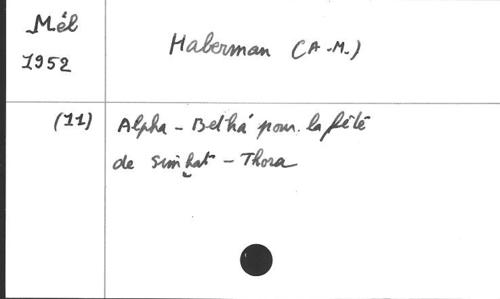 Mél
1952
Haberman (A-M.)
(11)
Alpha-Betha pour la fête
de Simḥat-Thora